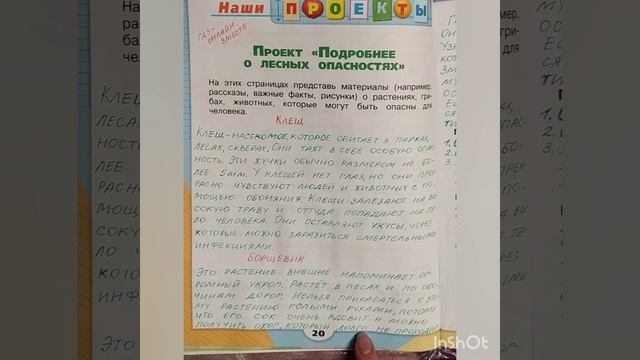 Наши ПРОЕКТЫ
ГДЗ-
ОНЛАЙН
ВМЕСТЕ
ПРОЕКТ «ПОДРОБНЕЕ
О ЛЕСНЫХ ОПАСНОСТЯХ»
На этих страницах представь материалы (например,
рассказы, важные факты, рисунки) о растениях, гри-
бах, животных, которые могут быть опасны для
человека.
КЛЕЩ
КЛЕЩ-НАСЕКОМОЕ, КОТОРОЕ ОБИТАЕТ В ПАРКАХ,
ЛЕСАХ, СКВЕРАХ. ОНИ ТАЯТ В СЕБЕ ОСОБУЮ ОПАС-
НОСТЬ. ЭТИ ЖУЧКИ ОБЫЧНО РАЗМЕРОМ НЕ БО-
ЛЕЕ 5ММ. У КЛЕЩЕЙ НЕТ ГЛАЗ, НО ОНИ ПРЕК-
РАСНО ЧУВСТВУЮТ ЛЮДЕЙ И ЖИВОТНЫХ С ПО-
МОЩЬЮ ОБОНЯНИЯ. КЛЕЩИ ЗАЛЕЗАЮТ НА ВЫ-
СОКУЮ ТРАВУ И ОТТУДА ПОПАДАЮТ НА ТЕ-
ЛО ЧЕЛОВЕКА. ОНИ ОСТАВЛЯЮТ УКУСЫ, ЧЕРЕЗ
КОТОРЫЕ МОЖНО ЗАРАЗИТЬСЯ СМЕРТЕЛЬНЫМИ
ИНФЕКЦИЯМИ.
БОРЩЕВИК
ЭТО РАСТЕНИЕ ВНЕШНЕ НАПОМИНАЕТ ОГ-
РОМНЫЙ УКРОП. РАСТЁТ В ЛЕСАХ И ПО ОБО-
ЧИНАМ ДОРОГ. НЕЛЬЗЯ ПРИКАСАТЬСЯ К ЭТО
МУ РАСТЕНИЮ ГОЛЫМИ РУКАМИ, ПОТОМУ
ЧТО ЕГО СОК ОЧЕНЬ ЯДОВИТ И МОЖНО
ПОЛУЧИТЬ ОЖОГ, КОТОРЫЙ ДОЛГО НЕ ПРОХОДИТ
20
InShOt